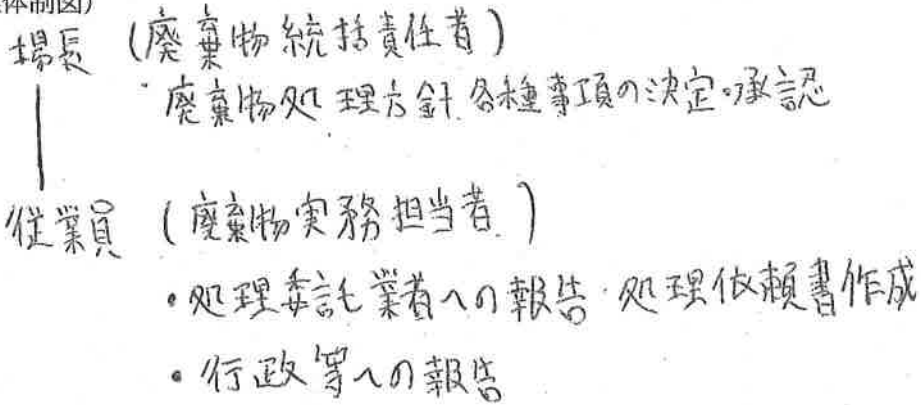 体制図)
場長 (廃棄物統括責任者)
・廃棄物処理方針.各種事項の決定・承認
従業員 (廃棄物実務担当者.)
・処理委託業者への報告・処理依頼書作成
・行政等への報告